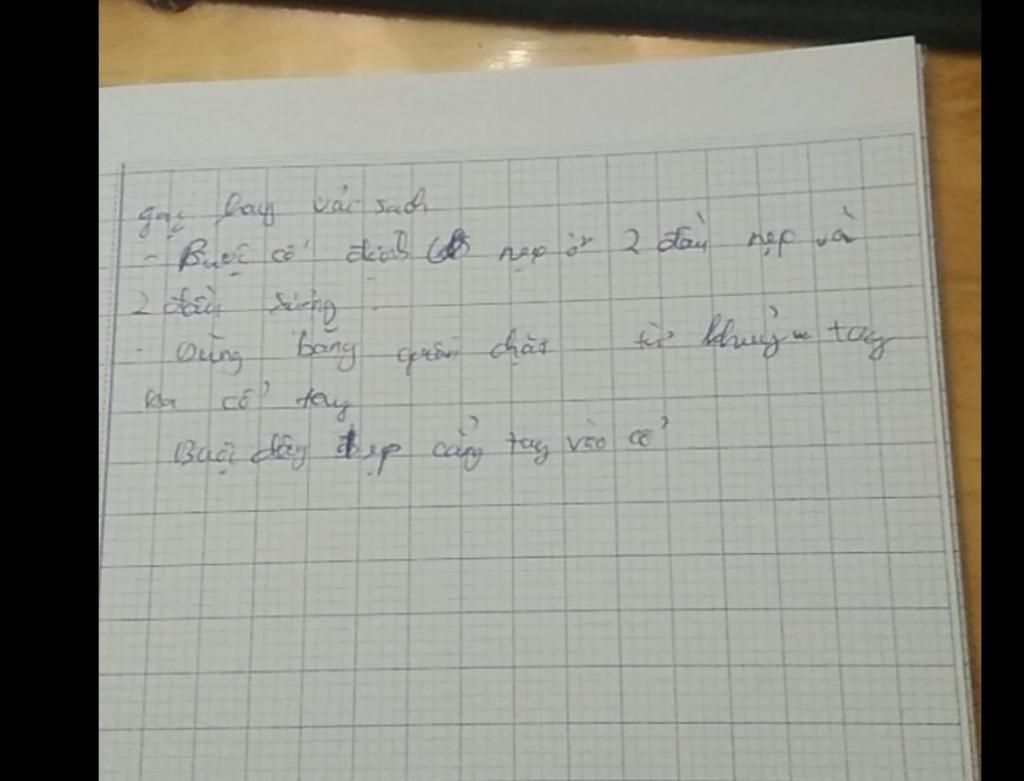 gạc hay vải sạch
- Buộc cố định nẹp ở 2 đầu nẹp và
2 đầu xương
- Dùng băng quấn chặt từ khuỷu tay
ra cổ tay
Buộc dây đẹp cẳng tay vào cổ